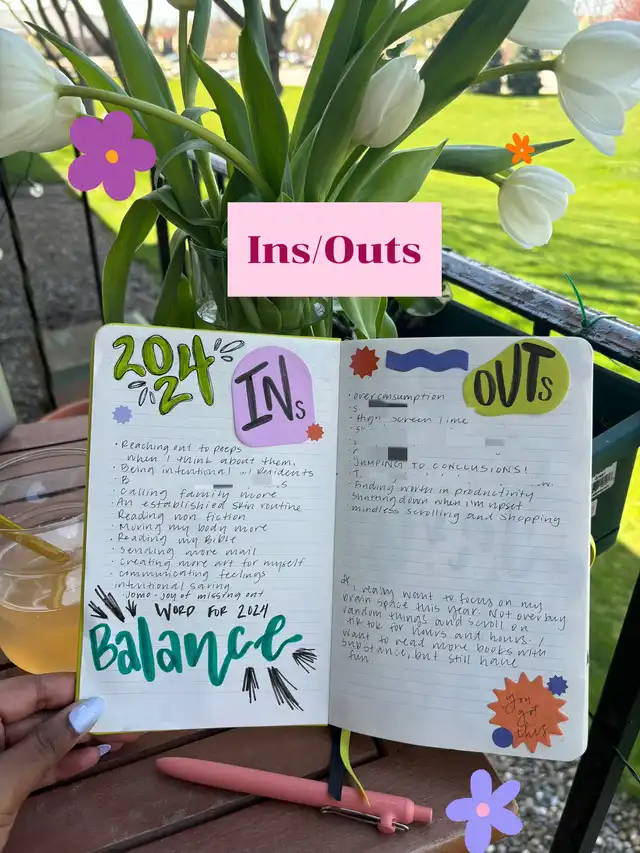 Ins/Outs
2024
INs
• Reaching out to peeps
when I think about them.
• Being intentional w/ Residents
• B
• Calling family more
• An established skin routine
• Reading non fiction
• Moving my body more
• Reading my Bible
• Sending more mail
• Creating more art for myself
• communicating feelings
• intentional saving
• Jomo - joy of missing out
WORD FOR 2024
Balance
OUTs
• overconsumption
• S
• High screen time
• JUMPING TO CONCLUSIONS!
• T
• Finding worth in productivity
• Shutting down when I'm upset
• mindless scrolling and shopping
I really want to focus on my
brain space this year. Not over buy
random things and scroll on
tik tok for hours and hours. I
want to read more books with
substance, but still have
fun.
you
got
this